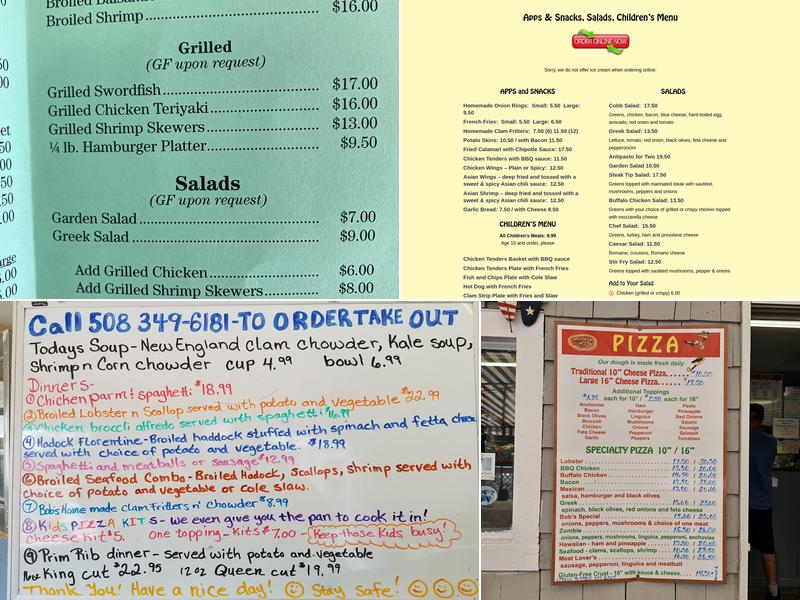 Broiled Shrimp $16.00
Grilled
(GF upon request)
Grilled Swordfish $17.00
Grilled Chicken Teriyaki $16.00
Grilled Shrimp Skewers $13.00
¼ lb. Hamburger Platter $9.50
Salads
(GF upon request)
Garden Salad $7.00
Greek Salad $9.00
Add Grilled Chicken $6.00
Add Grilled Shrimp Skewers $8.00
Apps & Snacks, Salads, Children's Menu
ORDER ONLINE NOW
Sorry, we do not offer ice cream when ordering online.
APPS and SNACKS
Homemade Onion Rings: Small: 5.50 Large:
9.50
French Fries: Small: 5.50 Large: 6.50
Homemade Clam Fritters: 7.50 (6) 11.50 (12)
Potato Skins: 10.50 / with Bacon 11.50
Fried Calamari with Chipotle Sauce: 17.50
Chicken Tenders with BBQ sauce: 11.50
Chicken Wings – Plain or Spicy: 12.50
Asian Wings – deep fried and tossed with a
sweet & spicy Asian chili sauce: 12.50
Asian Shrimp – deep fried and tossed with a
sweet & spicy Asian chili sauce: 12.50
Garlic Bread: 7.50 / with Cheese 8.50
CHILDREN'S MENU
All Children's Meals: 8.99
Age 10 and under, please
Chicken Tenders Basket with BBQ sauce
Chicken Tenders Plate with French Fries
Fish and Chips Plate with Cole Slaw
Hot Dog with French Fries
Clam Strip Plate with Fries and Slaw
SALADS
Cobb Salad: 17.50
Greens, chicken, bacon, blue cheese, hard-boiled egg,
avocado, red onion and tomato
Greek Salad: 13.50
Lettuce, tomato, red onion, black olives, feta cheese and
pepperoncini
Antipasto for Two 19.50
Garden Salad 10.50
Steak Tip Salad: 17.50
Greens topped with marinated steak with sautéed,
mushrooms, peppers and onions
Buffalo Chicken Salad: 13.50
Greens with your choice of grilled or crispy chicken topped
with mozzarella cheese
Chef Salad: 15.50
Greens, turkey, ham and provolone cheese
Caesar Salad: 11.50
Romaine, croutons, Romano cheese
Stir Fry Salad: 12.50
Greens topped with sautéed mushrooms, pepper & onions
Add to Your Salad
Chicken (grilled or crispy) 6.00
Call 508 349-6181-TO ORDER TAKE OUT
Todays Soup-New England clam chowder, Kale soup,
Shrimp n Corn chowder cup 4.99 bowl 6.99
Dinners-
① Chicken parm & spaghetti $18.99
② Broiled Lobster n Scallop served with potato and vegetable $22.99
③ Chicken broccli alfredo served with spaghetti
④ Hadock Florentine-Broiled haddock stuffed with spinach and fetta cheese
served with choice of potato and vegetable. $18.99
⑤ Spaghetti and meatballs or sausage $12.99
⑥ Broiled Seafood Combo-Broiled Hadock, Scallops, shrimp served with
choice of potato and vegetable or cole slaw.
⑦ Bob's Home made clam fritters n' chowder $8.99
⑧ Kids PIZZA KITS-we even give you the pan to cook it in!
Cheese Kit $5. One topping-Kits $7.00- Keep those Kids busy!
⑨ Prim Rib dinner-served with potato and vegetable
16oz King cut $22.95 12oz Queen cut $19.99
Thank You! Have a nice day! Stay Safe!
PIZZA
Our dough is made fresh daily
Traditional 10" Cheese Pizza
Large 16" Cheese Pizza
Additional Toppings
each for 10" / each for 16"
Anchovies Ham Pesto
Bacon Hamburger Pineapple
Black Olives Linguica Red Onions
Broccoli Mushrooms Salami
Chicken Onions Sausage
Feta Cheese Pepperoni Spinach
Garlic Peppers Tomatoes
SPECIALTY PIZZA 10" / 16"
Lobster
BBQ Chicken
Buffalo Chicken
Bacon
Mexican
salsa, hamburger and black olives
Greek
spinach, black olives, red onions and feta cheese
Bob's Special
onions, peppers, mushrooms & choice of one meat
Zombie
onions, peppers, mushrooms, linguica, pepperoni, anchovies
Hawaiian - ham and pineapple
Seafood - clams, scallops, shrimp
Meat Lover's
pepperoni, linguica, bacon and meatball
Gluten-Free Crust - 10" with sauce & cheese